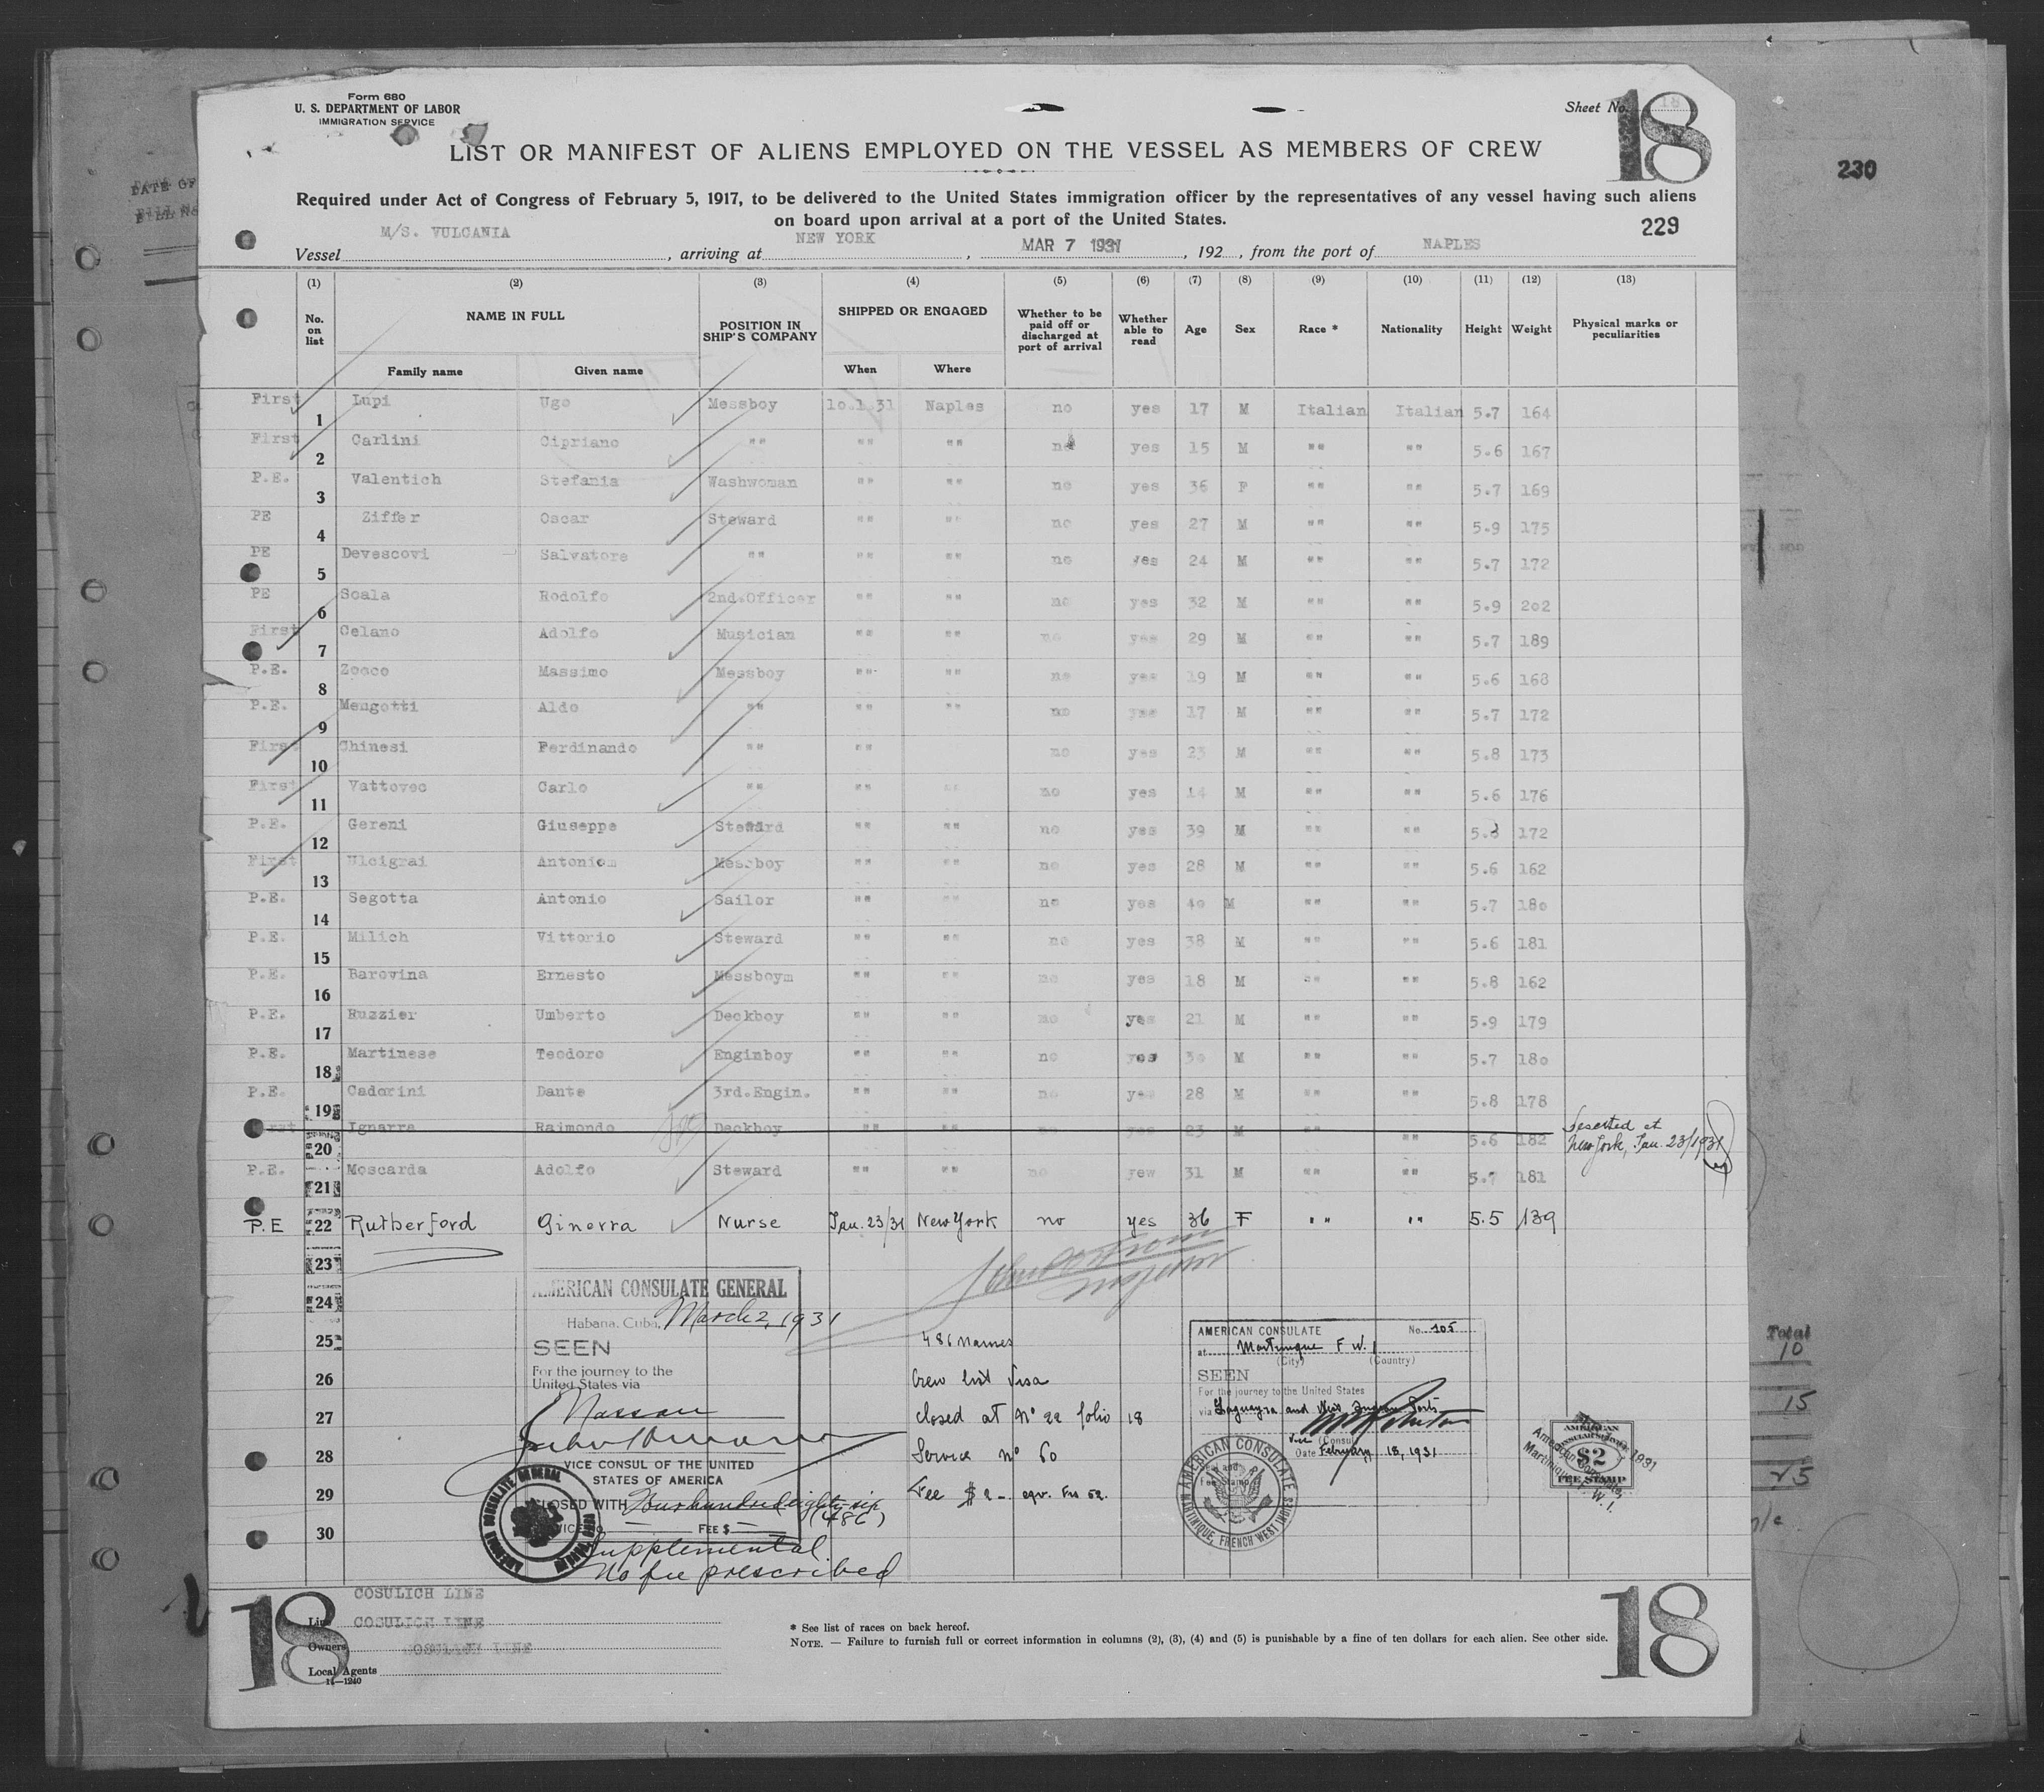 Form 680
U. S. DEPARTMENT OF LABOR
IMMIGRATION SERVICE
Sheet No.
18
LIST OR MANIFEST OF ALIENS EMPLOYED ON THE VESSEL AS MEMBERS OF CREW
230
Required under Act of Congress of February 5, 1917, to be delivered to the United States immigration officer by the representatives of any vessel having such aliens
on board upon arrival at a port of the United States.
229
Vessel M/S. VULCANIA, arriving at NEW YORK, MAR 7 1931, 192, from the port of NAPLES
(1) (2) (3) (4) (5) (6) (7) (8) (9) (10) (11) (12) (13)
No. on list NAME IN FULL POSITION IN SHIP'S COMPANY SHIPPED OR ENGAGED Whether to be paid off or discharged at port of arrival Whether able to read Age Sex Race * Nationality Height Weight Physical marks or peculiarities
Family name Given name When Where
First 1 Lupi Ugo Messboy 10.1.31 Naples no yes 17 M Italian Italian 5.7 164
First 2 Carlini Cipriano "" "" "" no yes 15 M "" "" 5.6 167
P.E. 3 Valentich Stefania Washwoman "" "" no yes 36 F "" "" 5.7 169
PE 4 Ziffer Oscar Steward "" "" no yes 27 M "" "" 5.9 175
PE 5 Devescovi Salvatore "" "" "" no yes 24 M "" "" 5.7 172
PE 6 Scala Rodolfo 2nd.Officer "" "" no yes 32 M "" "" 5.9 202
First 7 Celano Adolfo Musician "" "" no yes 29 M "" "" 5.7 189
P.E. 8 Massimo Messboy "" "" no yes 19 M "" "" 5.6 168
P.E. 9 Mengotti Aldo "" "" "" no yes 17 M "" "" 5.7 172
First 10 Chinesi Ferdinando "" "" no yes 23 M "" "" 5.8 173
First 11 Vattovec Carlo "" "" "" no yes 14 M "" "" 5.6 176
P.E. 12 Gereni Giuseppe Steward "" "" no yes 39 M "" "" 5.8 172
First 13 Ulcigrai Antoniom Messboy "" "" no yes 28 M "" "" 5.6 162
P.E. 14 Segotta Antonio Sailor "" "" no yes 40 M "" "" 5.7 180
P.E. 15 Milich Vittorio Steward "" "" no yes 38 M "" "" 5.6 181
P.E. 16 Barovina Ernesto Messboym "" "" no yes 18 M "" "" 5.8 162
P.E. 17 Ruzzier Umberto Deckboy "" "" no yes 21 M "" "" 5.9 179
P.E. 18 Martinese Teodoro Enginboy "" "" no yes 30 M "" "" 5.7 180
P.E. 19 Cadorini Dante 3rd.Engin. "" "" no yes 28 M "" "" 5.8 178
First 20 Ignarra Raimondo Deckboy "" "" no yes 23 M "" "" 5.6 182 Deserted at New York, Jan. 23/1931
P.E. 21 Moscarda Adolfo Steward "" "" no yew 31 M "" "" 5.7 181
P.E 22 Rutherford Ginevra Nurse Jan. 23/31 New York no yes 36 F "" "" 5.5 139
23
24
25
26
27
28
29
30
AMERICAN CONSULATE GENERAL
Habana, Cuba, March 2, 1931
SEEN
For the journey to the
United States via
Nassau
VICE CONSUL OF THE UNITED
STATES OF AMERICA
CLOSED WITH Four hundred eighty-six
(486)
SERVICE No. FEE $
Supplemental
No fee prescribed
486 names
Crew list visa
closed at No 22 folio 18
Service no 60
Fee $2- eqv. Frs 52.
AMERICAN CONSULATE No. 105
at Martinique F.W.I
(City) (Country)
SEEN
For the journey to the United States
via Laguayra and West Indian Ports
Vice Consul
Date February 18, 1931
AMERICAN CONSULATE
MARTINIQUE, FRENCH WEST INDIES
AMERICAN
CONSULAR SERVICE
$2
FEE STAMP
American Consulate,
Martinique, F. W. I.
Total
10
15
25
COSULICH LINE
Line COSULICH LINE
Owners COSULICH LINE
Local Agents
14—1240
* See list of races on back hereof.
NOTE. — Failure to furnish full or correct information in columns (2), (3), (4) and (5) is punishable by a fine of ten dollars for each alien. See other side.
18
18